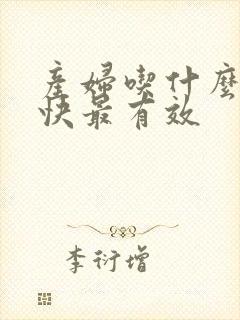 產婦喫什麼
快最有效
李衍增